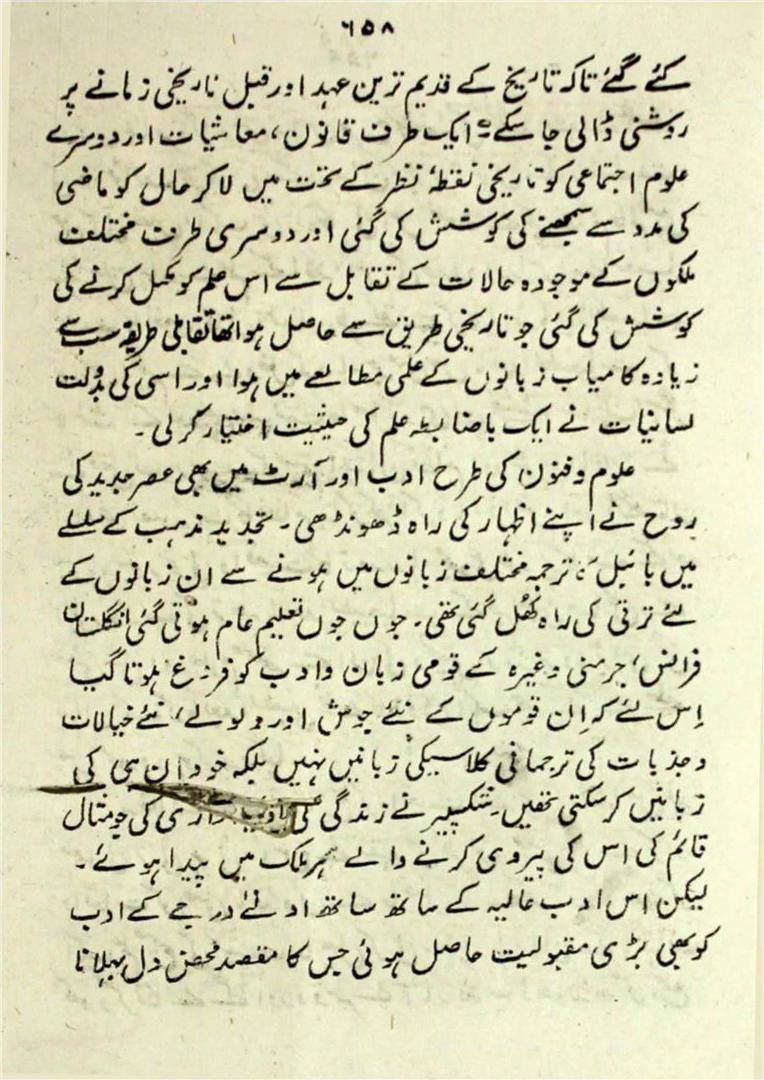 ٦٥٨
کئے گئے تاکہ تاریخ کے قدیم ترین عہد اور قبل تاریخی زمانے پر
روشنی ڈالی جا سکے۔ ایک طرف قانون، معاشیات اور دوسرے
علوم اجتماعی کو تاریخی نقطۂ نظر کے تحت میں لا کر حال کو ماضی
کی مدد سے سمجھنے کی کوشش کی گئی اور دوسری طرف مختلف
ملکوں کے موجودہ حالات کے تقابل سے اس علم کو مکمل کرنے کی
کوشش کی گئی جو تاریخی طریق سے حاصل ہوا تھا تقابلی طریقہ سب سے
زیادہ کامیاب زبانوں کے علمی مطالعے میں ہوا اور اسی کی بدولت
لسانیات نے ایک باضابطہ علم کی حیثیت اختیار کر لی۔
علوم و فنون کی طرح ادب اور آرٹ میں بھی عصر جدید کی
روح نے اپنے اظہار کی راہ ڈھونڈھی۔ تجدید مذہب کے سلسلے
میں بائبل کا ترجمہ مختلف زبانوں میں ہونے سے ان زبانوں کے
لئے ترقی کی راہ کھُل گئی تھی۔ جوں جوں تعلیم عام ہوتی گئی انگلستان
فرانس، جرمنی وغیرہ کے قومی زبان و ادب کو فروغ ہوتا گیا
اِس لئے کہ اِن قوموں کے نئے جوش اور ولولے، نئے خیالات
و جذبات کی ترجمانی کلاسیکی زبانیں نہیں بلکہ خود ان ہی کی
زبانیں کر سکتی تھیں۔ شکسپیر نے زندگی کی داری کی جو مثال
قائم کی اس کی پیروی کرنے والے ہر ملک میں پیدا ہوئے۔
لیکن اس ادب عالیہ کے ساتھ ساتھ ادنےٰ درجے کے ادب
کو بھی بڑی مقبولیت حاصل ہوئی جس کا مقصد محض دل بہلانا